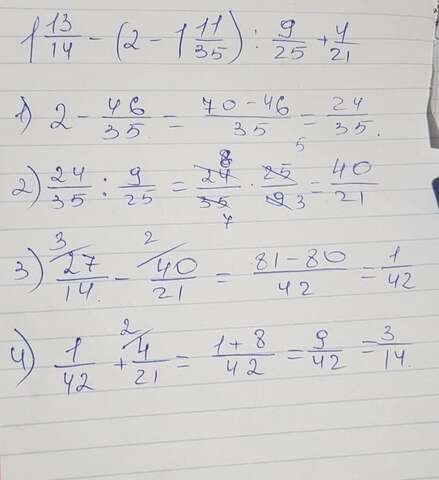 1 13/14 - (2 - 1 11/35) : 9/25 + 4/21
1) 2 - 46/35 = 70-46/35 = 24/35.
2) 24/35 : 9/25 = 24 8/35 7 · 25 5/9 3 = 40/21
3) 27/14 3/ - 40/21 2/ = 81-80/42 = 1/42
4) 1/42 + 4/21 2/ = 1+8/42 = 9/42 = 3/14.